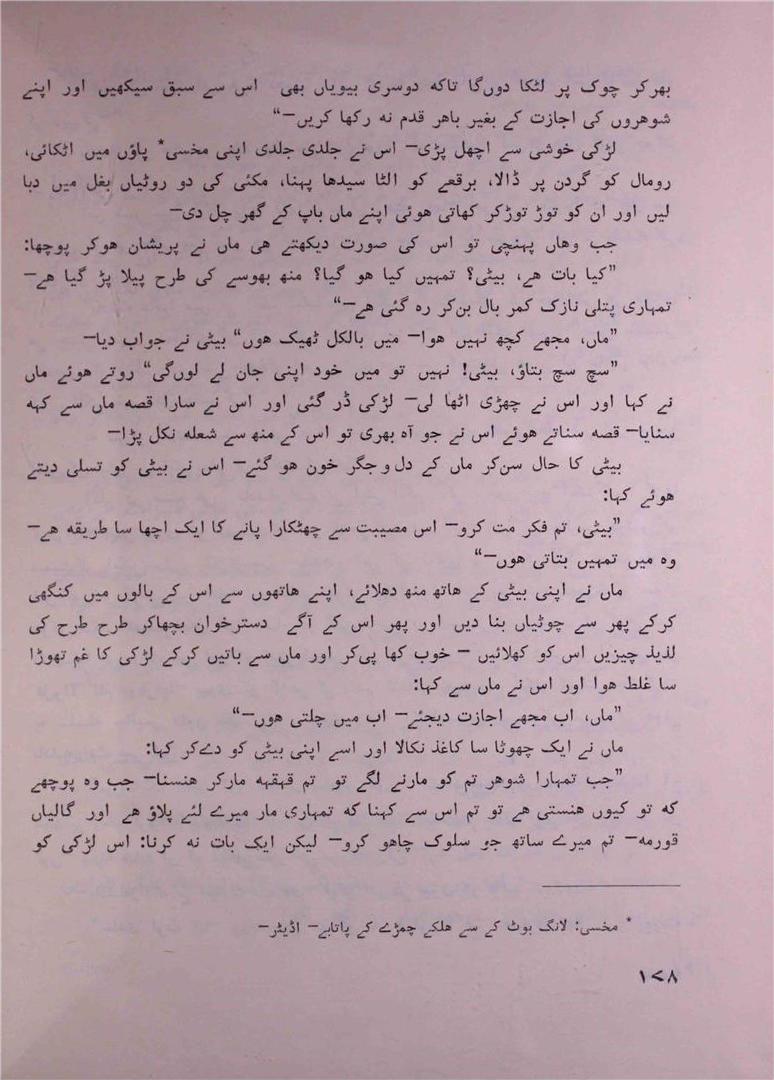 بھرکر چوک پر لٹکا دوں‌گا تاکه دوسری بیویاں بھی اس سے سبق سیکھیں اور اپنے
شوھروں کی اجازت کے بغیر باھر قدم نه رکھا کریں—“
لڑکی خوشی سے اچھل پڑی— اس نے جلدی جلدی اپنی مخسی* پاؤں میں اٹکائی،
رومال کو گردن پر ڈالا، برقعے کو الٹا سیدھا پہنا، مکئی کی دو روٹیاں بغل میں دبا
لیں اور ان کو توڑ توڑکر کھاتی ھوئی اپنے ماں باپ کے گھر چل دی—
جب وھاں پہنچی تو اس کی صورت دیکھتے ھی ماں نے پریشان ھوکر پوچھا:
”کیا بات ھے، بیٹی؟ تمہیں کیا ھو گیا؟ منھ بھوسے کی طرح پیلا پڑ گیا ھے—
تمہاری پتلی نازک کمر بال بن‌کر رہ گئی ھے—“
”ماں، مجھے کچھ نہیں ھوا— میں بالکل ٹھیک ھوں“ بیٹی نے جواب دیا—
”سچ سچ بتاؤ، بیٹی! نہیں تو میں خود اپنی جان لے لوں‌گی“ روتے ھوئے ماں
نے کہا اور اس نے چھڑی اٹھا لی— لڑکی ڈر گئی اور اس نے سارا قصه ماں سے کہه
سنایا— قصه سناتے ھوئے اس نے جو آہ بھری تو اس کے منھ سے شعله نکل پڑا—
بیٹی کا حال سن‌کر ماں کے دل و جگر خون ھو گئے— اس نے بیٹی کو تسلی دیتے
ھوئے کہا:
”بیٹی، تم فکر مت کرو— اس مصیبت سے چھٹکارا پانے کا ایک اچھا سا طریقه ھے—
وہ میں تمہیں بتاتی ھوں—“
ماں نے اپنی بیٹی کے ھاتھ منھ دھلائے، اپنے ھاتھوں سے اس کے بالوں میں کنگھی
کرکے پھر سے چوٹیاں بنا دیں اور پھر اس کے آگے دسترخوان بچھاکر طرح طرح کی
لذیذ چیزیں اس کو کھلائیں — خوب کھا پی‌کر اور ماں سے باتیں کرکے لڑکی کا غم تھوڑا
سا غلط ھوا اور اس نے ماں سے کہا:
”ماں، اب مجھے اجازت دیجئے— اب میں چلتی ھوں—“
ماں نے ایک چھوٹا سا کاغذ نکالا اور اسے اپنی بیٹی کو دے‌کر کہا:
”جب تمہارا شوھر تم کو مارنے لگے تو تم قہقہه مارکر ھنسنا— جب وہ پوچھے
که تو کیوں ھنستی ھے تو تم اس سے کہنا که تمہاری مار میرے لئے پلاؤ ھے اور گالیاں
قورمه— تم میرے ساتھ جو سلوک چاھو کرو— لیکن ایک بات نه کرنا: اس لڑکی کو
* مخسی: لانگ بوٹ کے سے ھلکے چمڑے کے پاتابے— اڈیٹر—
۱۷۸